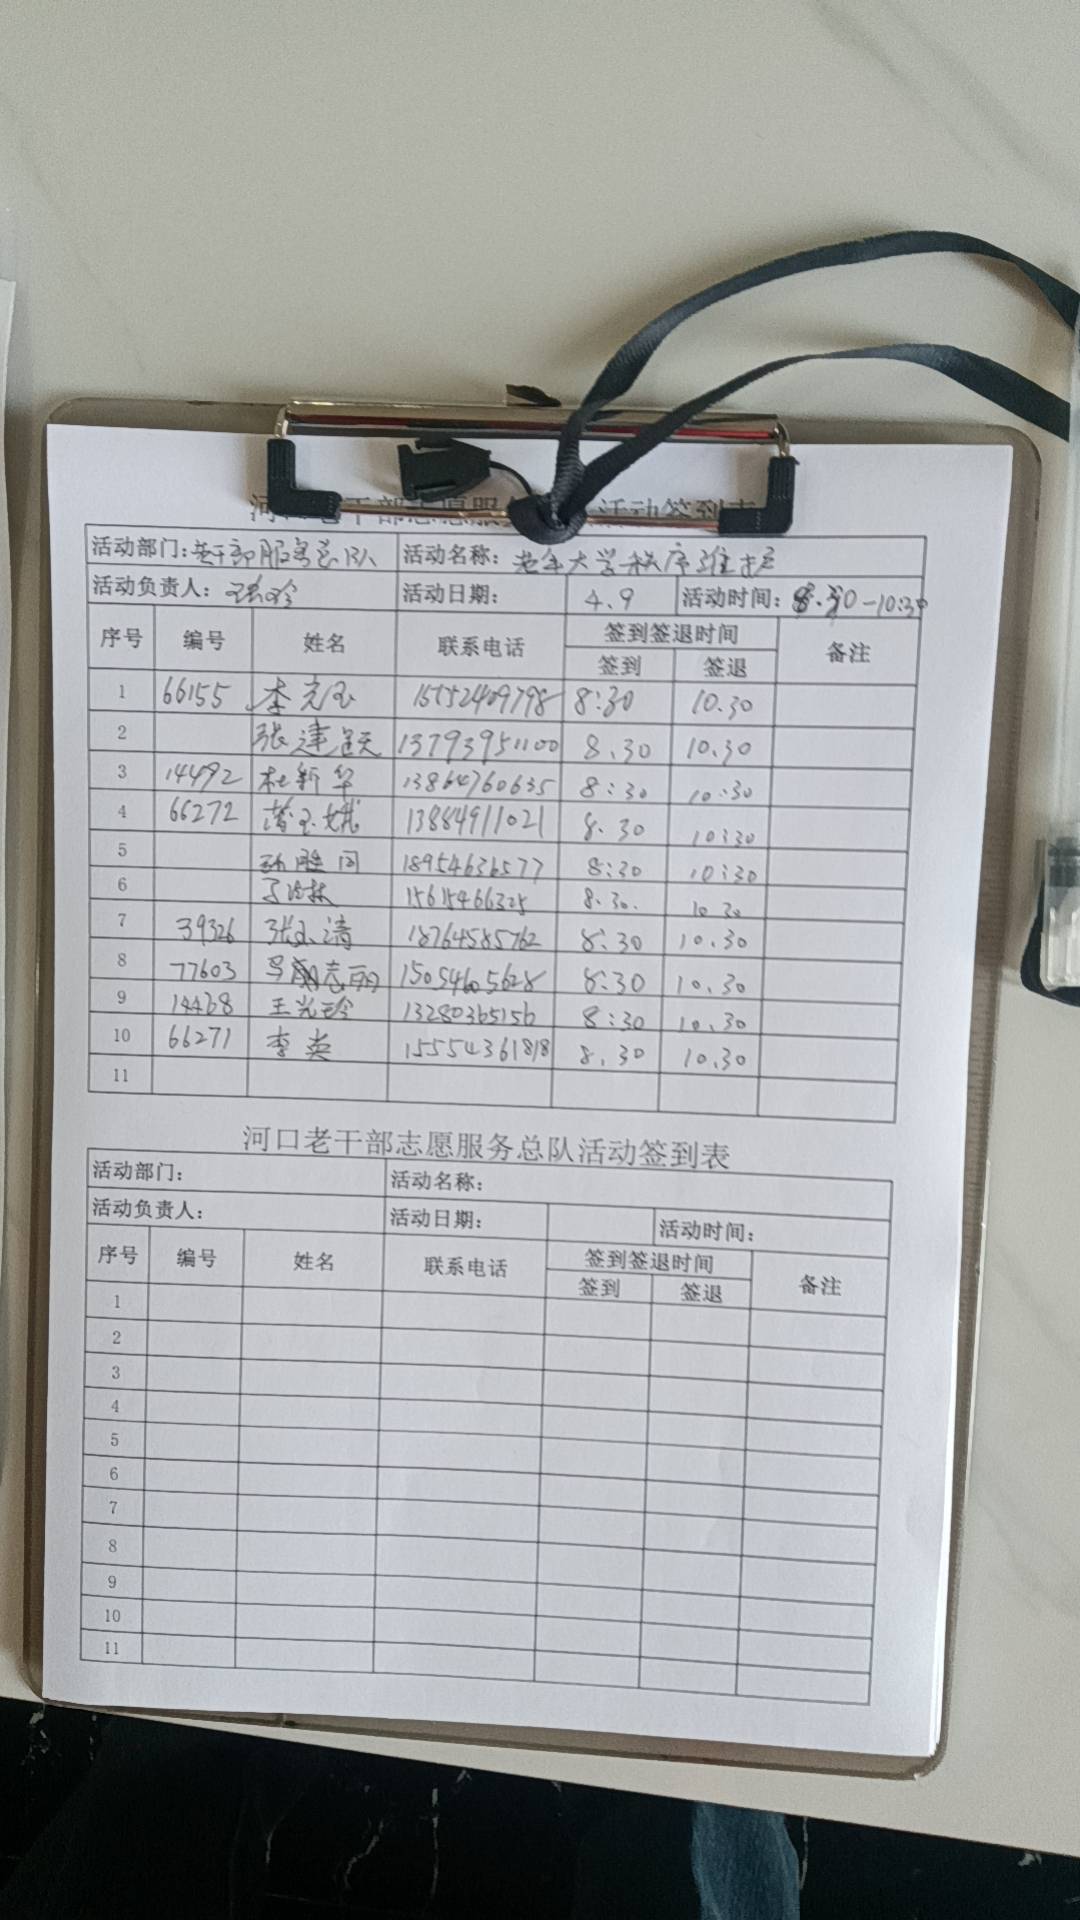 河口老干部志愿服务 活动签到表
活动部门:老干部服务总队 活动名称: 老年大学秩序维护
活动负责人: 活动日期: 4.9 活动时间: 8.30-10:30
序号 编号 姓名 联系电话 签到签退时间 备注
签到 签退
1 66155 李光玉 15552409798 8:30 10.30
2 张建 13793951100 8.30 10.30
3 14492 杜新华 13864760635 8:30 10:30
4 66272 13884911021 8.30 10:30
5 18954636577 8:30 10:30
6 15615466325 8.30. 10 30
7 39326 张玉清 18764585762 8:30 10.30
8 77603 15054605628 8:30 10.30
9 14468 王光玲 13280365156 8:30 10.30
10 66271 李英 15554361818 8.30 10.30
11
河口老干部志愿服务总队活动签到表
活动部门: 活动名称:
活动负责人: 活动日期: 活动时间:
序号 编号 姓名 联系电话 签到签退时间 备注
签到 签退
1
2
3
4
5
6
7
8
9
10
11